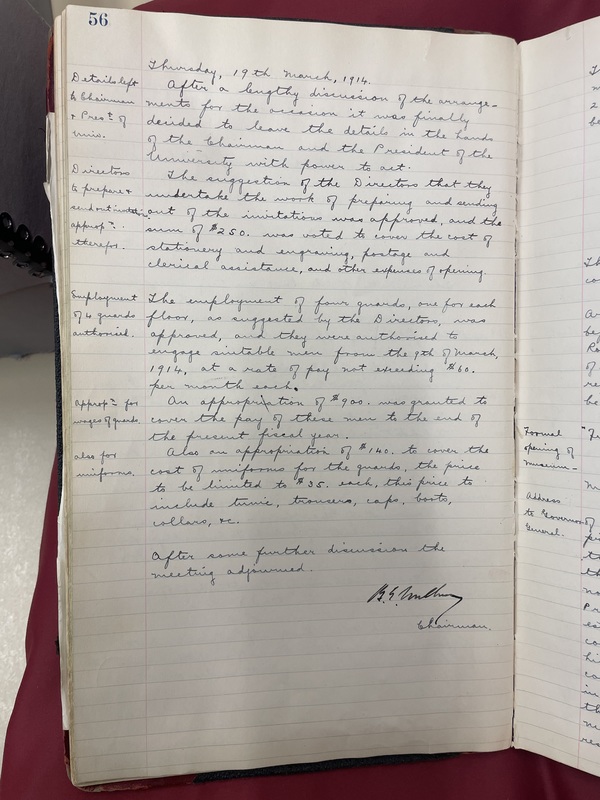 56
Thursday, 19th March, 1914.
Details left
to Chairman
+ Prest. of
Univ.
After a lengthy discussion of the arrange-
ments for the occasion it was finally
decided to leave the details in the hands
of the Chairman and the President of the
University with power to act.
Directors
to prepare +
send out
approp.n
therefor.
The suggestion of the Directors that they
undertake the work of preparing and sending
out of the invitations was approved, and the
sum of $250. was voted to cover the cost of
stationery and engraving, postage and
clerical assistance, and other expenses of opening.
Employment
of 4 guards
authorised.
The employment of four guards, one for each
floor, as suggested by the Directors, was
approved, and they were authorised to
engage suitable men from the 9th of March,
1914, at a rate of pay not exceeding $60.
per month each.
Approp.n for
wages of guards.
An appropriation of $900. was granted to
cover the pay of these men to the end of
the present fiscal year.
also for
uniforms.
Also an appropriation of $140. to cover the
cost of uniforms for the guards, the price
to be limited to $35. each, this price to
include tunic, trousers, caps, boots,
collars, &c.
After some further discussion the
meeting adjourned.
Chairman.
Formal
opening of
Museum-
Address
to Governor
General.